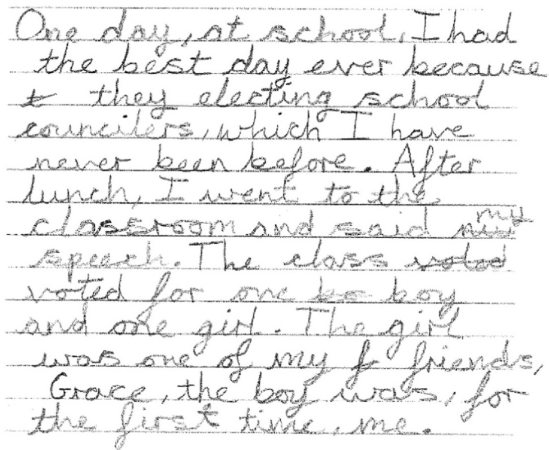 One day, at school, I had
the best day ever because
t they electing school
councilers, which I have
never been before. After
lunch, I went to the
classroom and said my
speech. The class voted
voted for one bo boy
and one girl. The girl
was one of my f friends,
Grace, the boy was, for
the first time, me.